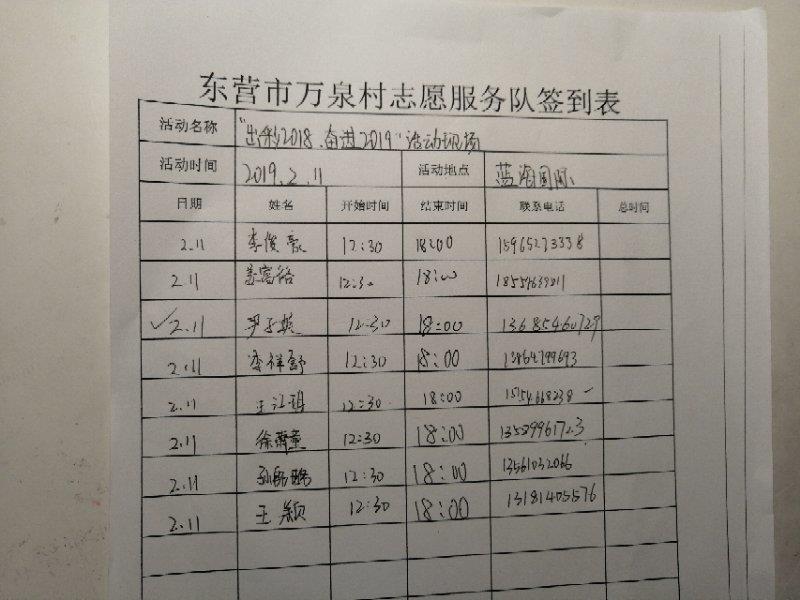 东营市万泉村志愿服务队签到表
活动名称 "出彩2018、奋进2019"活动现场
活动时间 2019.2.11 活动地点 蓝海国际
日期 姓名 开始时间 结束时间 联系电话 总时间
2.11 李俊豪 12:30 18:00 15965273338
2.11 12:30 18:00 18554639211
2.11 尹子英 12:30 18:00 13685460729
2.11 李祥舒 12:30 18:00
2.11 王江琪 12:30 18:00
2.11 徐 12:30 18:00 13589961723
2.11 孙 12:30 18:00 13561032066
2.11 王颖 12:30 18:00 13181405576